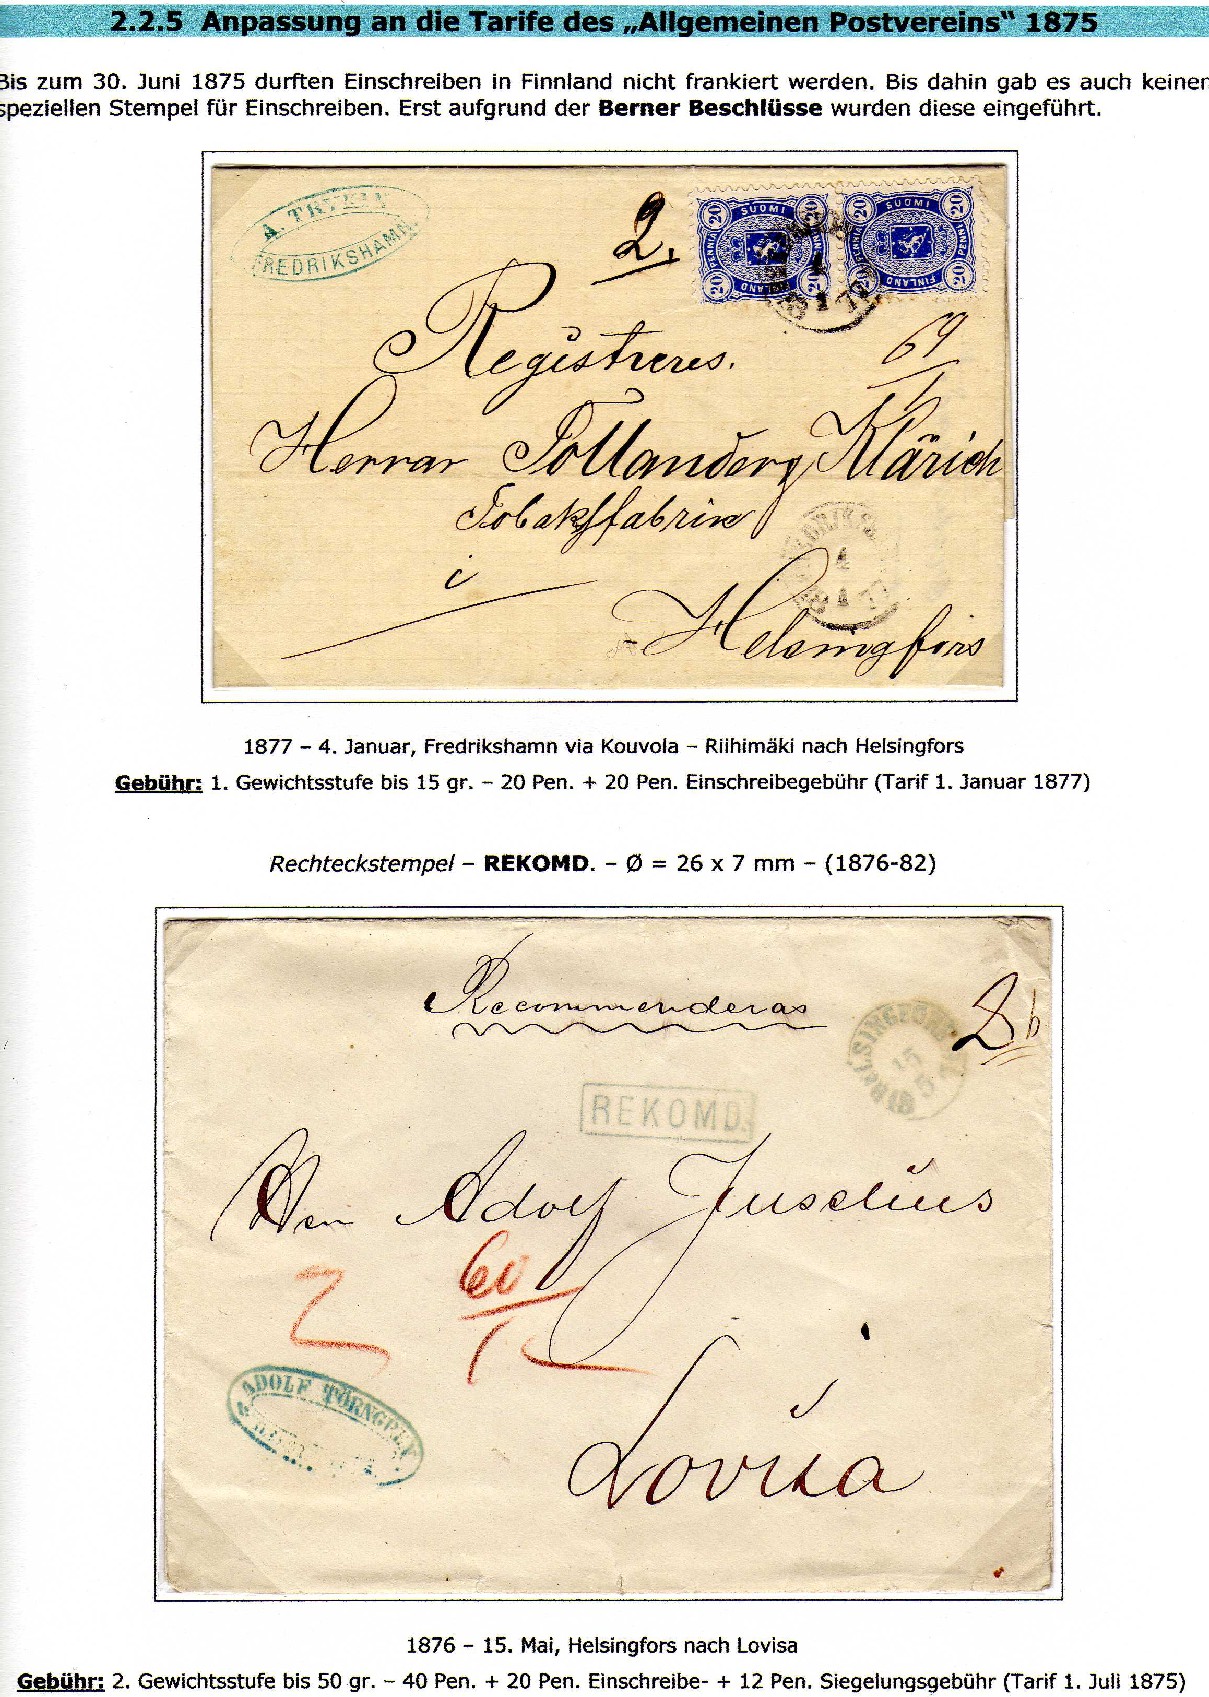 2.2.5 Anpassung an die Tarife des „Allgemeinen Postvereins“ 1875
Bis zum 30. Juni 1875 durften Einschreiben in Finnland nicht frankiert werden. Bis dahin gab es auch keinen
speziellen Stempel für Einschreiben. Erst aufgrund der Berner Beschlüsse wurden diese eingeführt.
FREDRIKSHAMN
2.
20 SUOMI 20
PENNIÄ PENNI
20 FINLAND 20
20 SUOMI 20
PENNIÄ PENNI
20 FINLAND 20
4
1 77
Registreras.
69
1
Herrar Tollander & Klärich
Tobaksfabrik
4
1 77
i
Helsingfors
1877 – 4. Januar, Fredrikshamn via Kouvola – Riihimäki nach Helsingfors
Gebühr: 1. Gewichtsstufe bis 15 gr. – 20 Pen. + 20 Pen. Einschreibegebühr (Tarif 1. Januar 1877)
Rechteckstempel – REKOMD. – Ø = 26 x 7 mm – (1876-82)
Recommenderas
HELSINGFORS
15
5
2 b
REKOMD.
Adolf Juselius
60
1
2
ADOLF TÖRNGREN
i
Lovisa
1876 – 15. Mai, Helsingfors nach Lovisa
Gebühr: 2. Gewichtsstufe bis 50 gr. – 40 Pen. + 20 Pen. Einschreibe- + 12 Pen. Siegelungsgebühr (Tarif 1. Juli 1875)